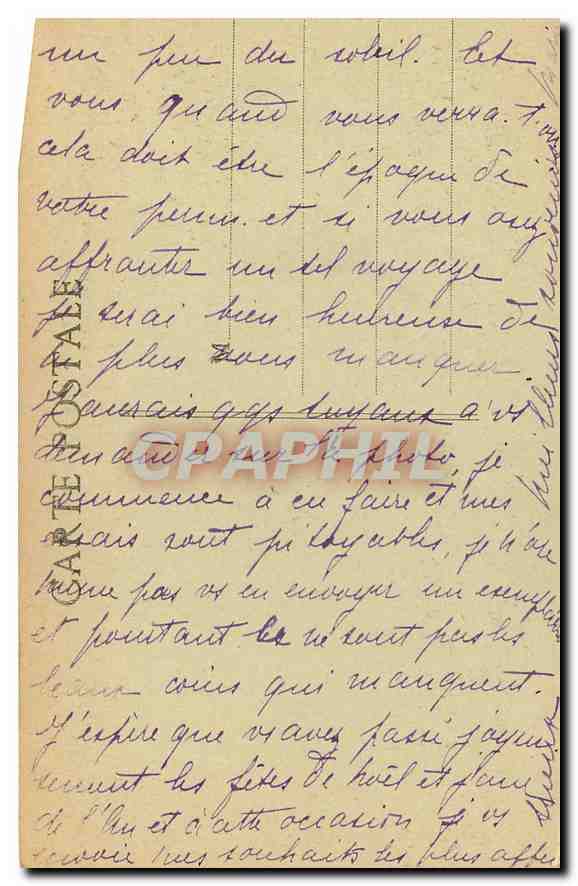 un peu du soleil. Et
vous, quand vous verra-t-on
cela doit être l'époque de
votre perm. et si vous osez
affronter un tel voyage
je serai bien heureuse de
plus vous manquer.
J'aurais qqs tuyaux à vs
demander sur la photo, je
commence à en faire et mes
essais sont pitoyables, je n'ose
même pas vs en envoyer un exemplaire
et pourtant ce ne sont pas les
beaux coins qui manquent.
J'espère que vs avez passé joyeu
sement les fêtes de Noël et jour
de l'An et à cette occasion je vs
envoie mes souhaits les plus affec
CARTE POSTALE
CPAPHIL